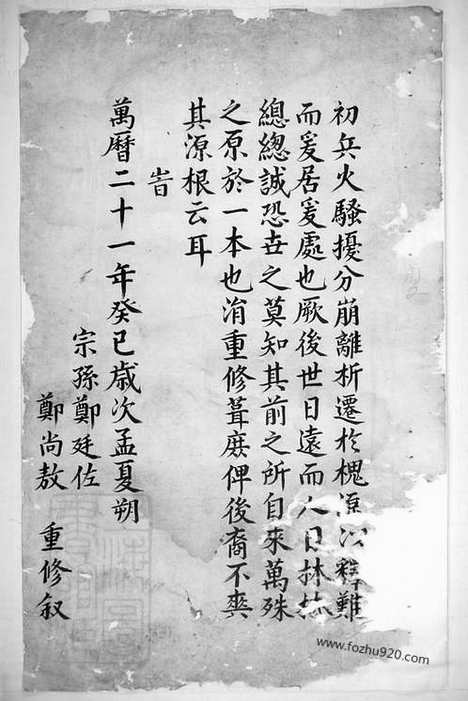 初兵火騷擾分崩離析遷於槐源以釋難
而爰居爰處也厥後世日遠而人日林林
總總誠恐世之莫知其前之所自來萬殊
之原於一本也涓重修葺庶俾後裔不爽
其源根云耳
旹
萬曆二十一年癸巳歲次孟夏朔
宗孫鄭廷佐
鄭尚敖 重修叙
www.fozhu920.com